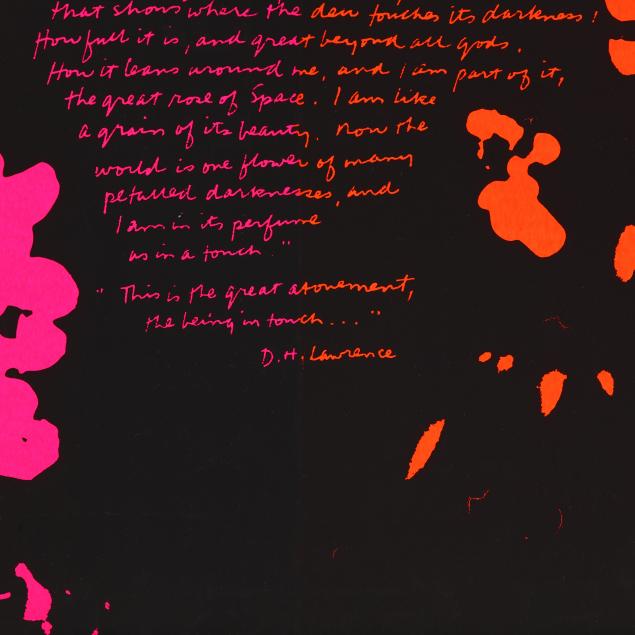 that shows where the dew touches its darkness!
How full it is, and great beyond all gods.
How it leans around me, and I am part of it,
the great rose of Space. I am like
a grain of its beauty. Now the
world is one flower of many
petalled darknesses, and
I am in its perfume
as in a touch."
" This is the great atonement,
the being in touch..."
D.H. Lawrence